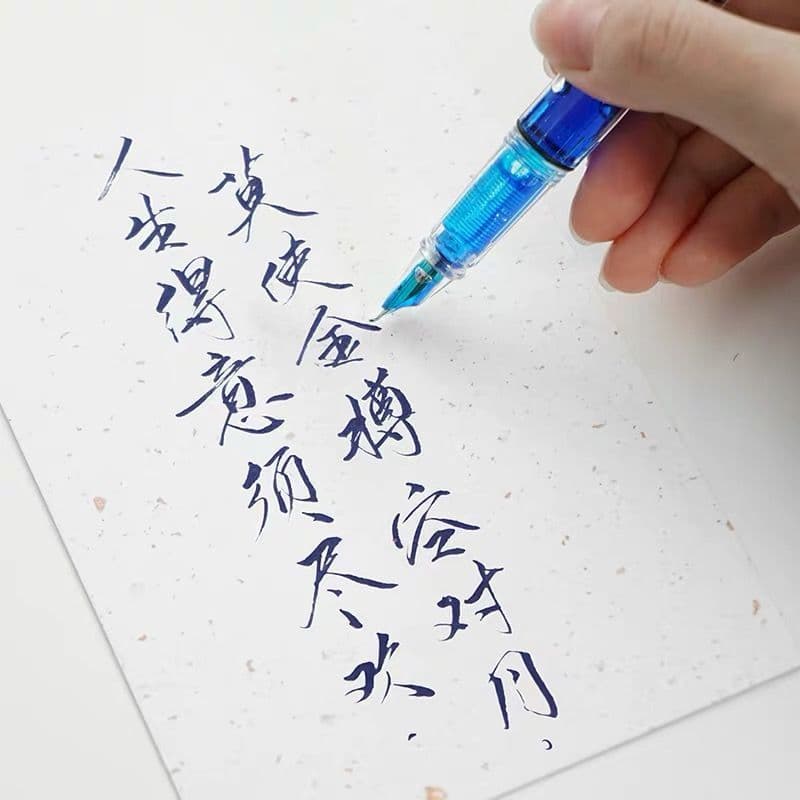 人生得意须尽欢.
莫使金樽空对月.